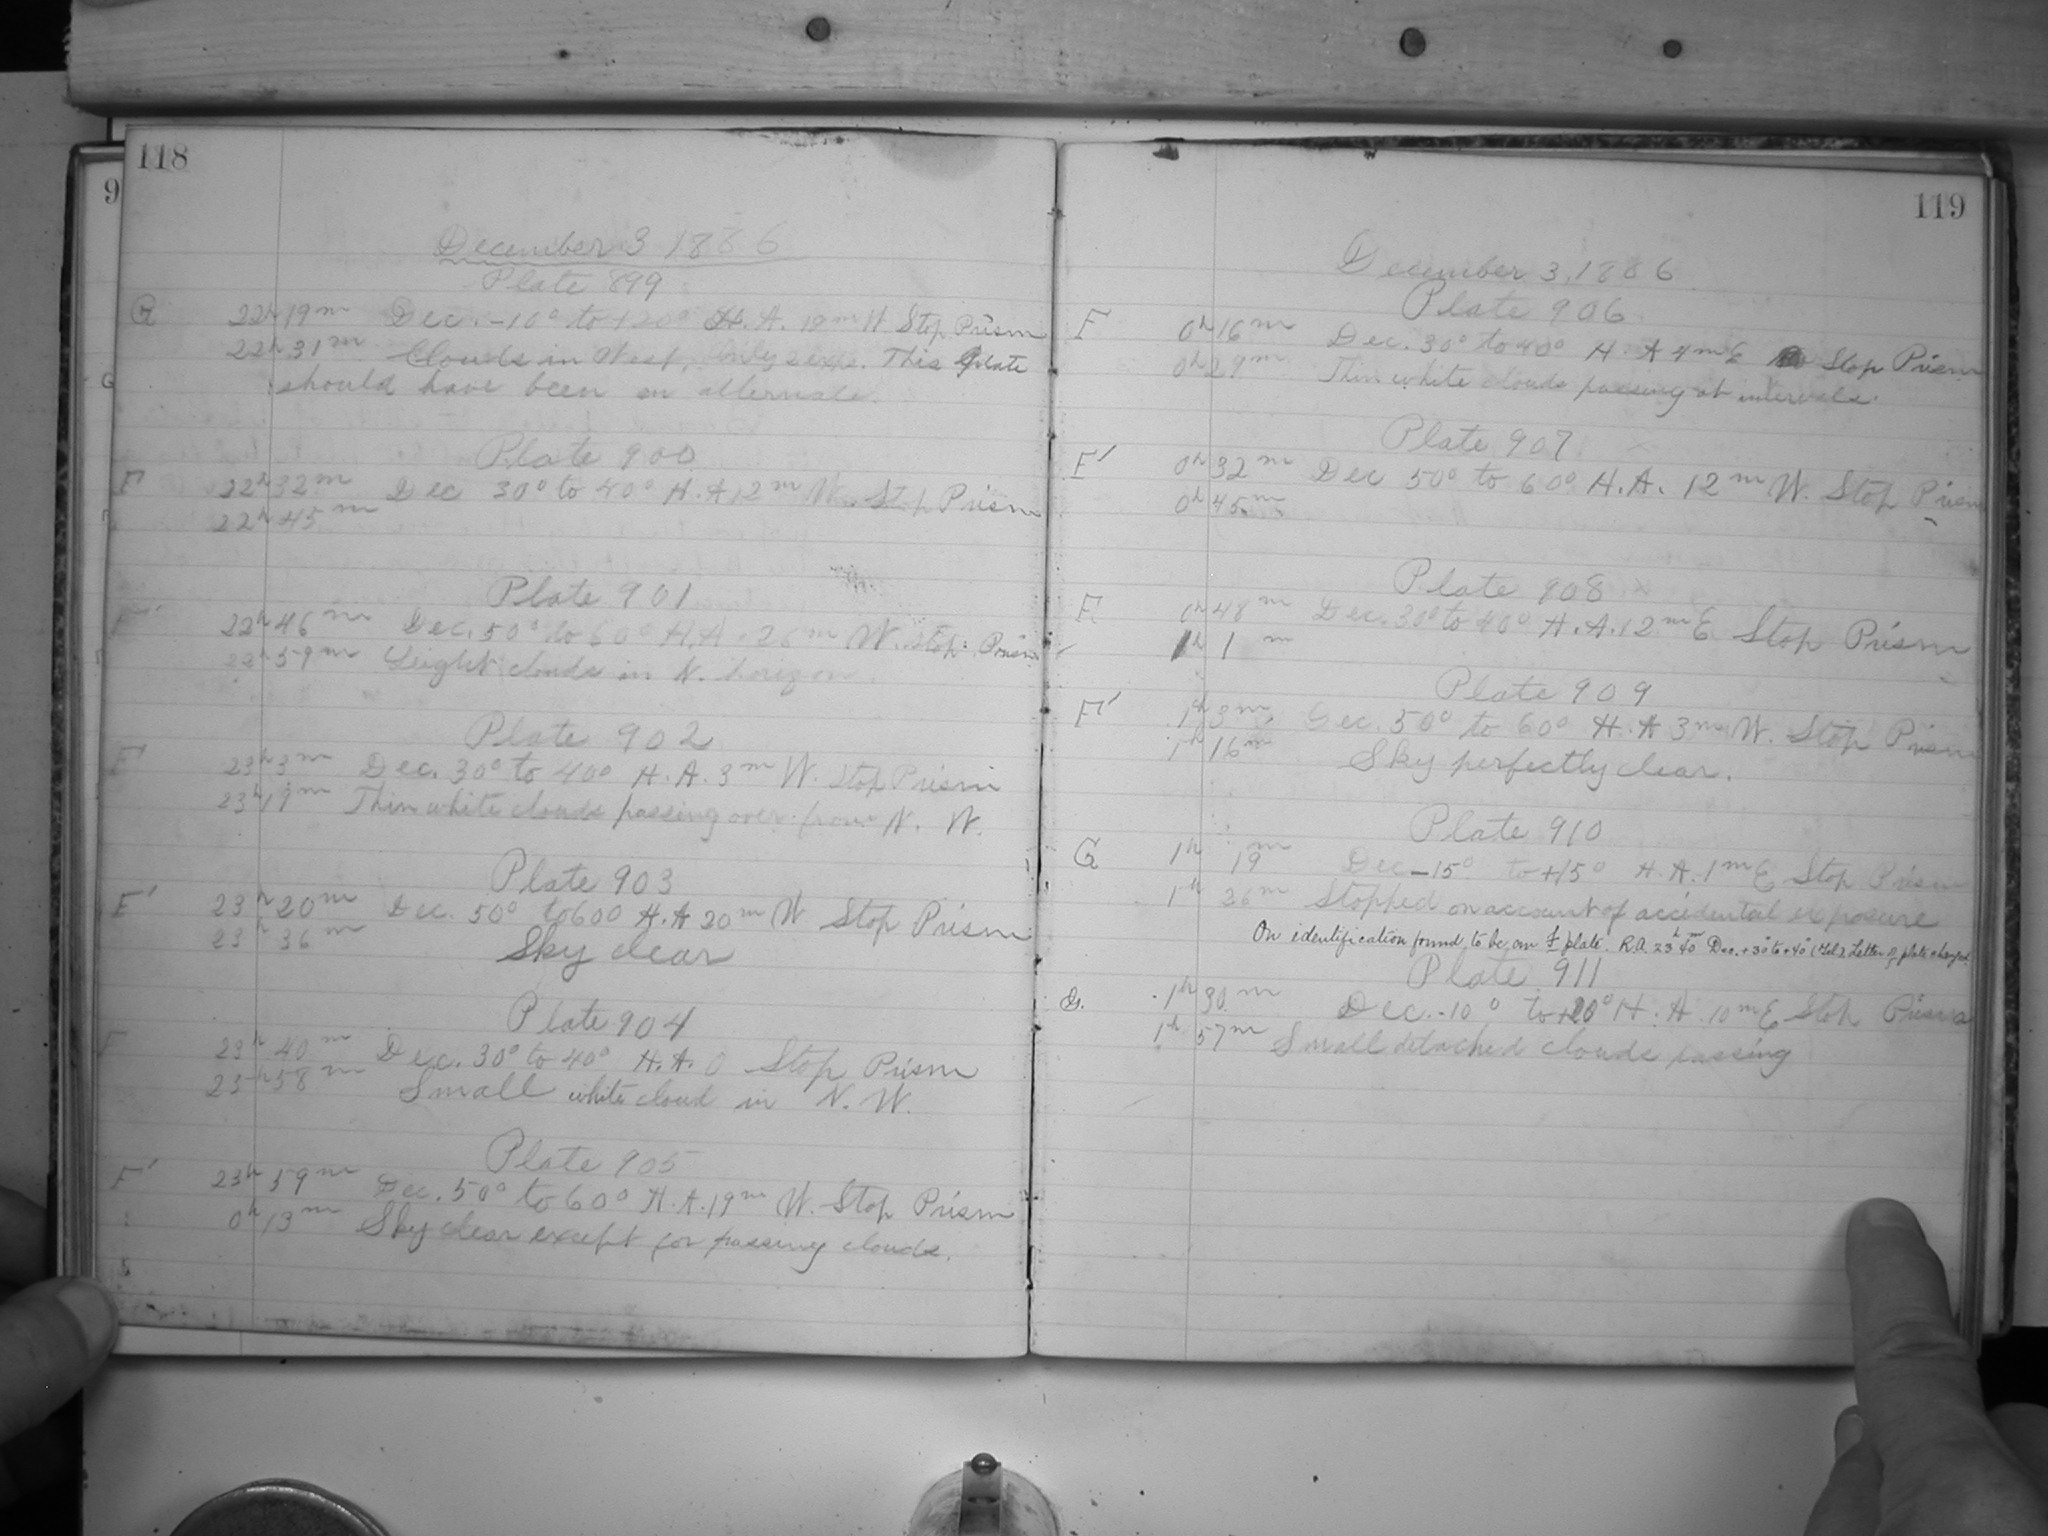 118
9
December 3 1886
Plate 899
G 22h 19m Dec. -10° to +20° H.A. 18m W Stop Prism
22h 31m Clouds in West, Only 2 exp. This plate
should have been an alternate.
G
Plate 900
F 22h 32m Dec 30° to 40° H.A 12m W. Stop Prism
22h 45m
Plate 901
F' 22h 46m Dec. 50° to 60° H.A. 26m W. Stop Prism
22h 59m Light clouds in N. horizon.
Plate 902
F 23h 3m Dec. 30° to 40° H.A. 3m W. Stop Prism
23h 19m Thin white clouds passing over from N. W.
Plate 903
F' 23h 20m Dec. 50° to 600 H.A 20m W Stop Prism
23h 36m Sky clear
Plate 904
F 23h 40m Dec. 30° to 40° H.A. 0 Stop Prism
23h 58m Small white cloud in N. W.
Plate 905
F' 23h 59m Dec. 50° to 60° H.A. 19m W. Stop Prism
0h 13m Sky clear except for passing clouds.
119
December 3, 1886
Plate 906
F 0h 16m Dec. 30° to 40° H.A 4m E Stop Prism
0h 29m Thin white clouds passing at intervals.
Plate 907
F' 0h 32m Dec 50° to 60° H.A. 12m W. Stop Prism
0h 45m
Plate 908
F 0h 48m Dec. 30° to 40° H.A. 12m E Stop Prism
1h 1m
Plate 909
F' 1h 3m Dec. 50° to 60° H.A 3m W. Stop Prism
1h 16m Sky perfectly clear.
Plate 910
G 1h 19m Dec -15° to +15° H.A. 1m E Stop Prism
1h 26m Stopped on account of accidental exposure
On identification found to be an f plate. R.A. 23h 40m Dec. +30° to +40° Letter of plate changed.
Plate 911
G. 1h 30m Dec. -10° to +20° H.A. 10m E Stop Prism
1h 57m Small detached clouds passing